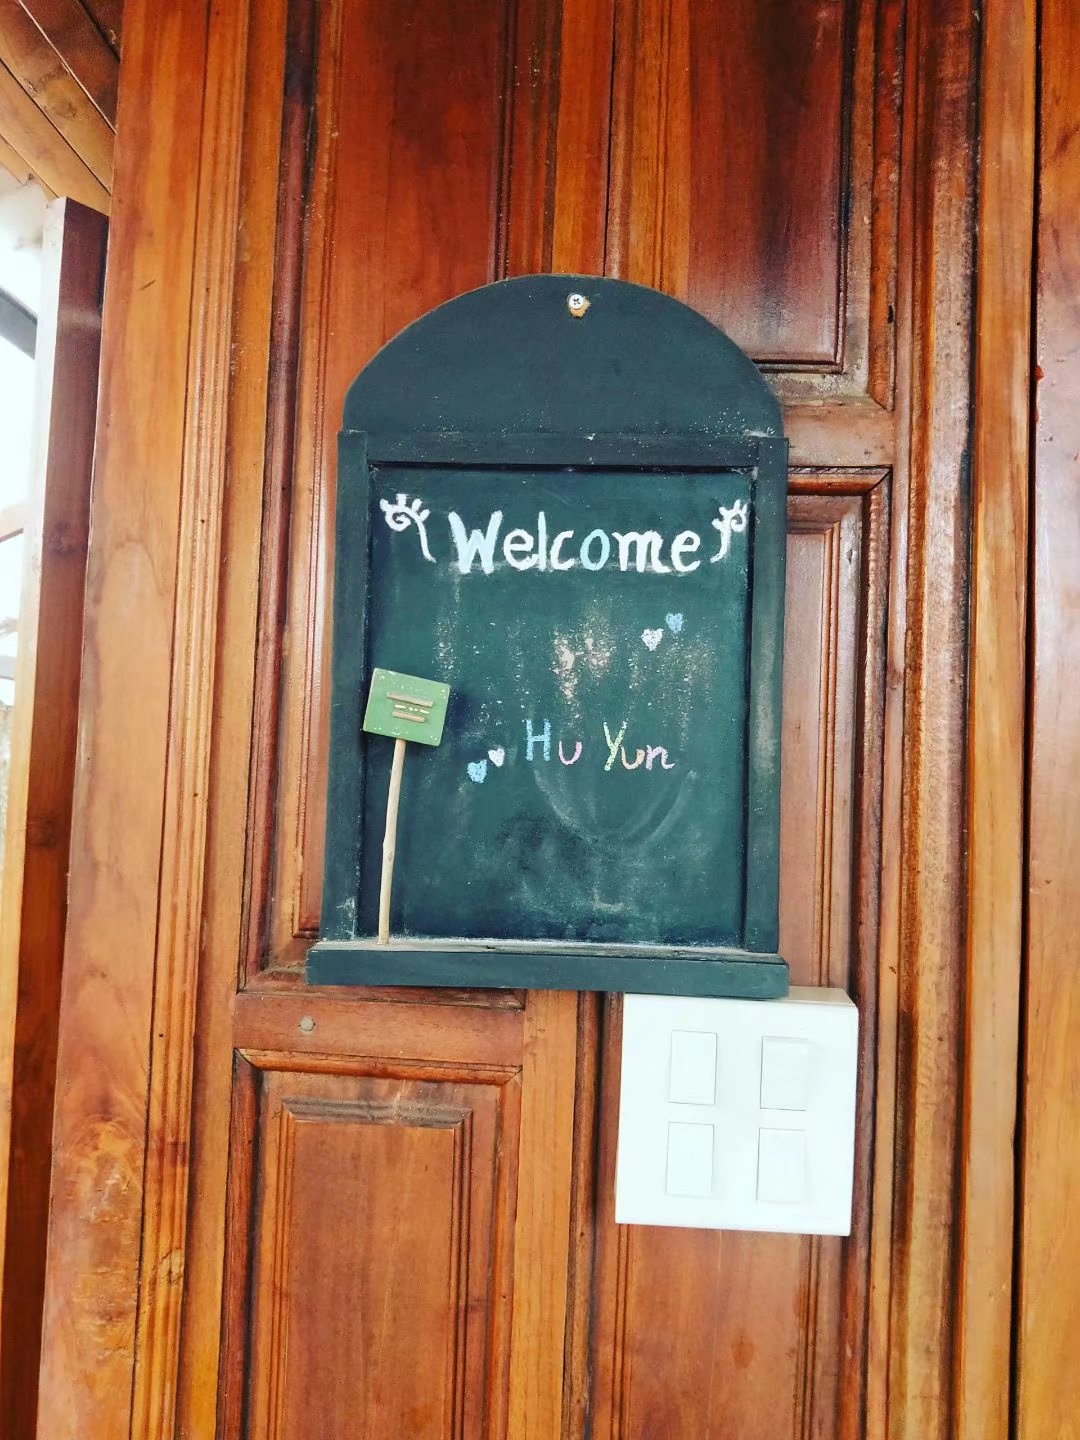 Welcome
Hu Yun